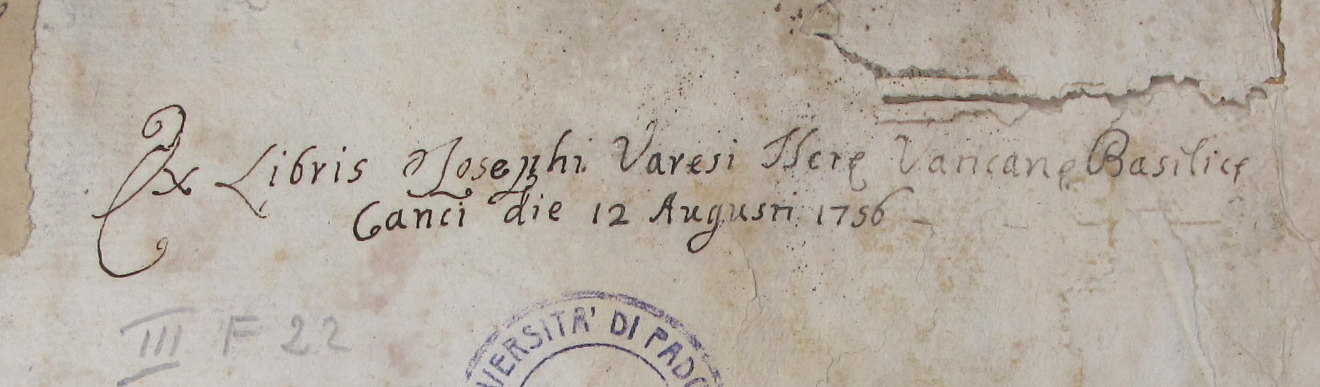 Ex Libris Josephi Varesi Vaticanę Basilicę
Canci die 12 Augusti 1756
III F 22
VERSITA' DI PADO